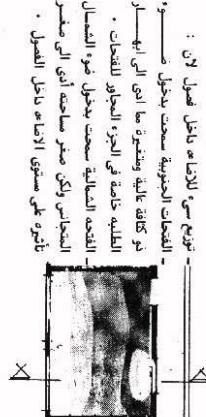 - توزيع سيء للاضاءه داخل فصول لان :
- الفتحات الجنوبية سمحت بدخول ضـــوء
ذو كثافة عالية ومتغيرة مما ادى الى ابهــار
الطلبه خاصة فى الجزء المجاور للفتحات .
- الفتحه الشمالية سمحت بدخول ضوء الشمـال
المتجانس ولكن صغر مساحته أدى الى صغــر
تأثيره على مستوى الاضاءه داخل الفصول .
X
X